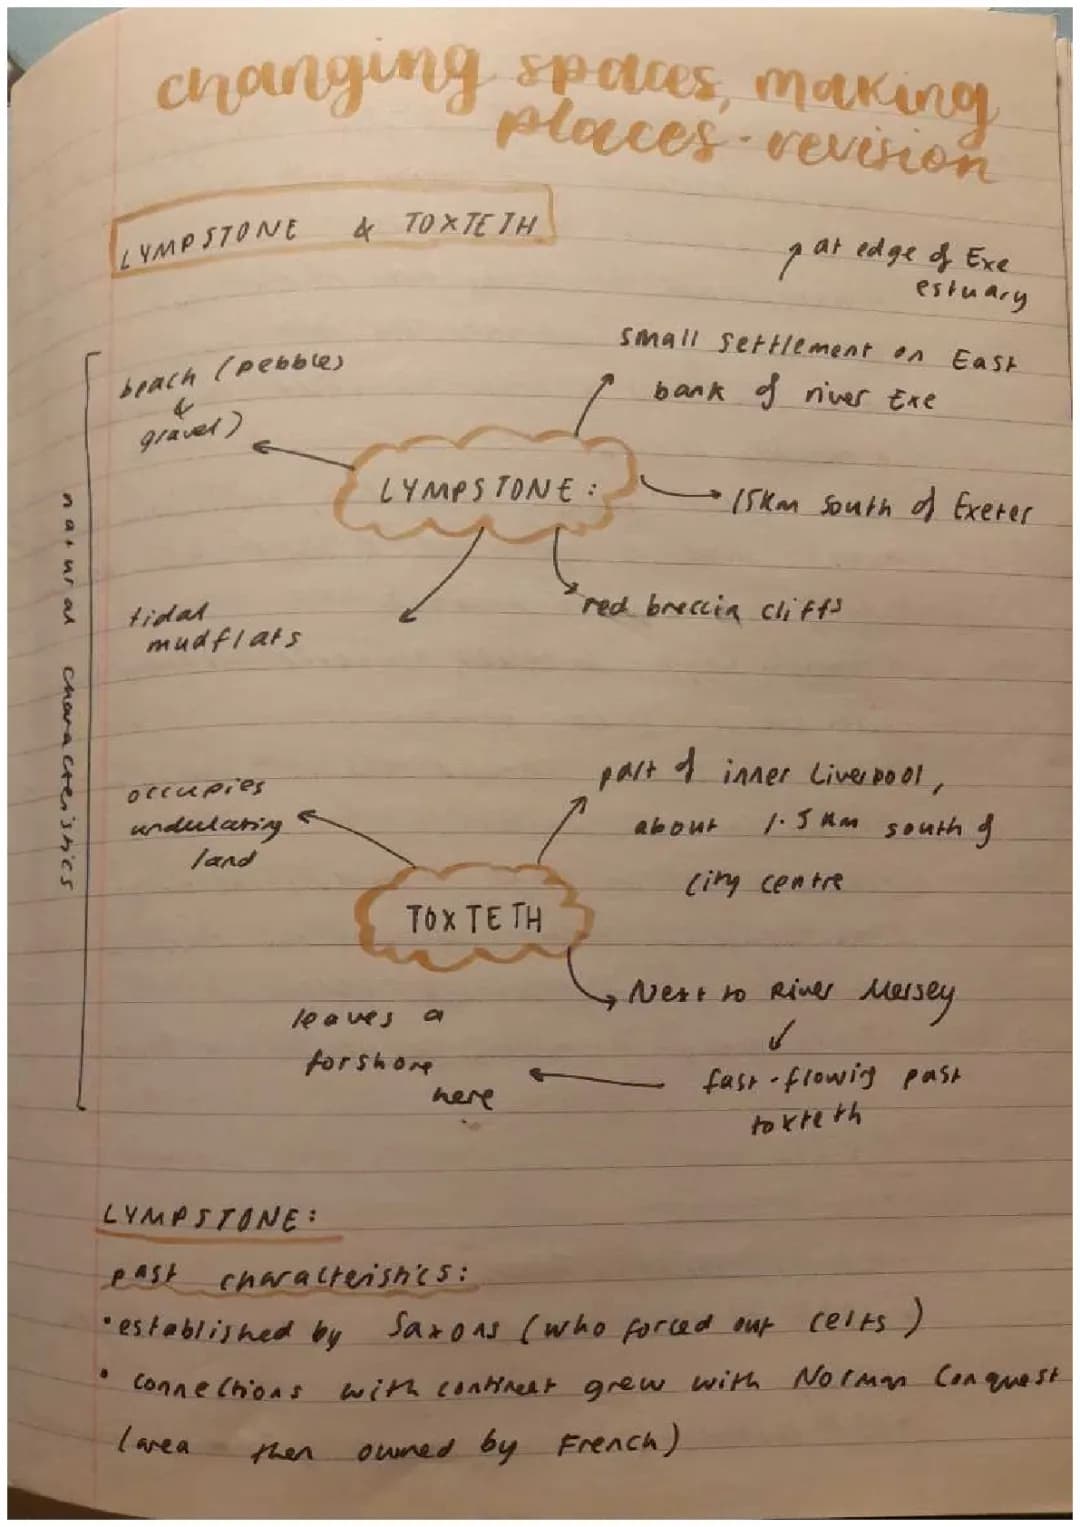 changing spaces, making
places - revision
LYMPSTONE & TOXTETH
at edge of Exe
estuary
small settlement on East
bank of river Exe
beach (pebbles
&
gravel)
LYMPSTONE:
15km south of Exeter
red breccia cliffs
tidal
mudflats
natural characteristics
part of inner Liverpool,
about 1.5km south of
city centre
occupies
undulating
land
TOXTETH
Next to River Mersey
fast-flowing past
toxteth
leaves a
forshore
here
LYMPSTONE:
past characteristics:
• established by Saxons (who forced out celts)
• connections with continent grew with Norman Conquest
(area then owned by French)